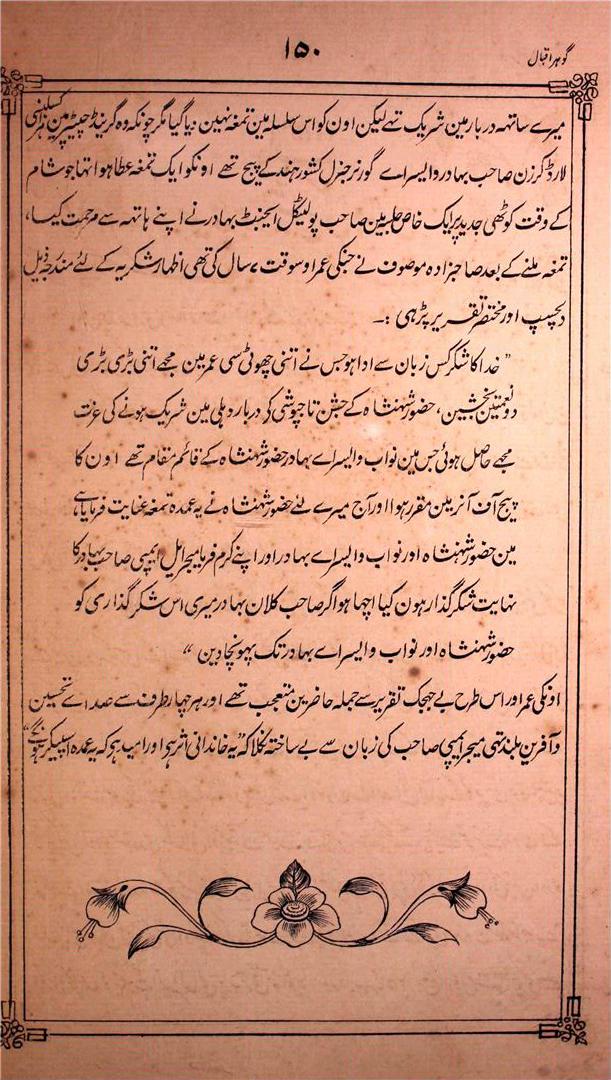 گوہر اقبال
۱۵۰
میرے ساتھہ دربارمین شریک تہے لیکن اون کو اس سلسلہ مین تمغہ نہین دیا گیا مگر چونکہ وہ گرینڈ چیپٹر مین ہزاکسلنسی
لارڈ کرزن صاحب بہادر وایسراے گورنر جنرل کشور ہند کے پیج تھے اونکو ایک تمغہ عطا ہوا تہا جو شام
کے وقت کوٹھی جدید پر ایک خاص جلسہ مین صاحب پولیٹکل ایجنٹ بہادر نے اپنے ہاتھہ سے مرحمت کیا،
تمغہ ملنے کے بعد صاحبزادہ موصوف نے جنکی عمر اوسوقت ۷ سال کی تھی اظہار شکریہ کے لئے مندرجہ ذیل
دلچسپ اور مختصر تقریر پڑہی :۔
” خدا کا شکر کس زبان سے ادا ہو جس نے اتنی چھوٹی سی عمر مین مجھے اتنی بڑی بڑی
دو نعمتین بخشین، حضور شہنشاہ کے جشن تاجپوشی کی دربار دہلی مین شریک ہونے کی عزت
مجھے حاصل ہوئی جس مین نواب وایسراے بہادر حضور شہنشاہ کے قائم مقام تھے اون کا
پیج آف آنر مین مقرر ہوا اور آج میرے لئے حضور شہنشاہ نے یہ عمدہ تمغہ عنایت فرمایا ہے
مین حضور شہنشاہ اور نواب وایسراے بہادر اور اپنے کرم فرما میجر ایل ایمپی صاحب بہادر کا
نہایت شکر گذار ہون کیا اچہا ہو اگر صاحب کلان بہادر میری اس شکر گذاری کو
حضور شہنشاہ اور نواب وایسراے بہادر تک پہونچا دین “
اونکی عمر اور اس طرح بے جہجک تقریر سے جملہ حاضرین متعجب تھے اور ہر چہار طرف سے صداے تحسین
و آفرین بلند تہی میجر ایمپی صاحب کی زبان سے بے ساختہ نکلا کہ ”یہ خاندانی اثر ہی اور امید ہی کہ یہ عمدہ اسپیکر ہونگے“